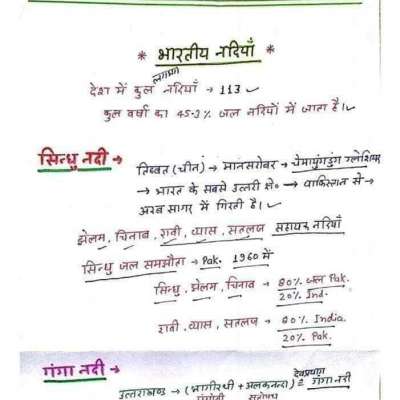 * भारतीय नदियाँ *
देश में कुल लगभग नदियाँ → 113
कुल वर्षा का 45.3% जल नदियों में जाता है।
सिन्धु नदी → तिब्बत (चीन) → मानसरोवर → चेमायुंगडुंग ग्लेशियर
→ भारत के सबसे उत्तरी क्षे० → पाकिस्तान से →
अरब सागर में गिरती है।
झेलम, चिनाब, रावी, व्यास, सतलज सहायक नदियाँ
सिन्धु जल समझौता → Pak. 1960 में
सिन्धु, झेलम, चिनाब → 80% जल Pak.
20% Ind.
रावी, व्यास, सतलज → 80% India.
20% Pak.
गंगा नदी →
उत्तराखण्ड → (भागीरथी + अलकनन्दा) देवप्रयाग गंगा नदी
गंगोत्री